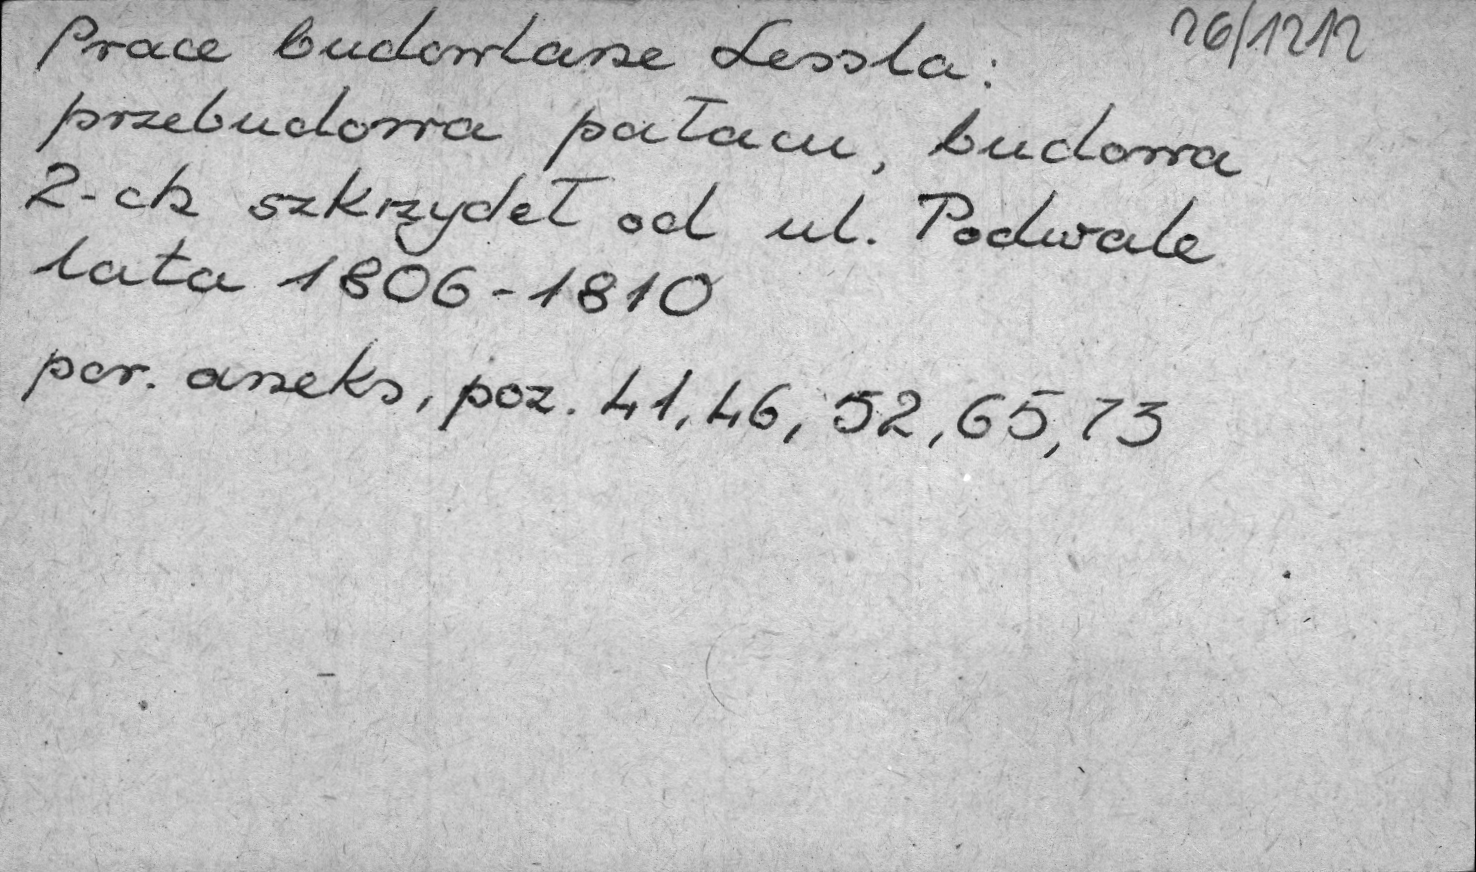 26/1212
Prace budowlane Lessla:
przebudowa pałacu, budowa
2-ch szkrzydeł od ul. Podwale
lata 1806-1810
por. aneks, poz. 41, 46, 52, 65, 73